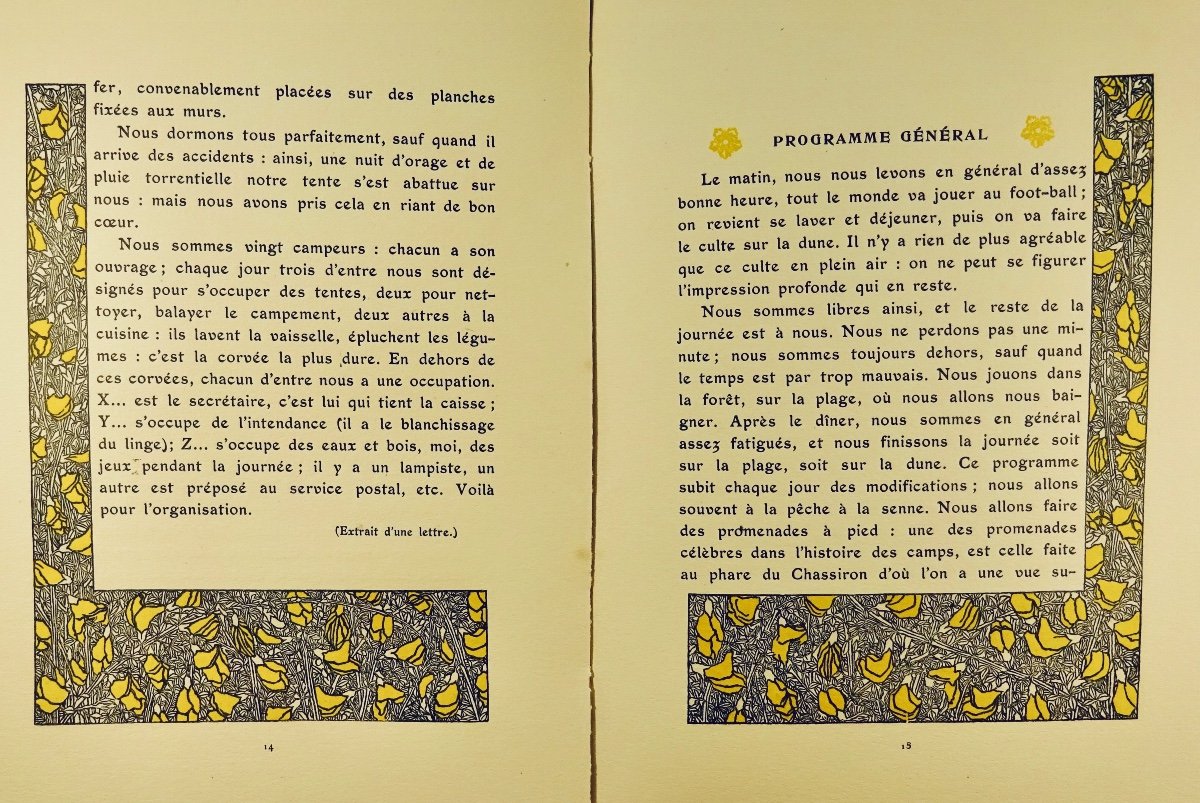 fer, convenablement placées sur des planches
fixées aux murs.
Nous dormons tous parfaitement, sauf quand il
arrive des accidents : ainsi, une nuit d'orage et de
pluie torrentielle notre tente s'est abattue sur
nous : mais nous avons pris cela en riant de bon
cœur.
Nous sommes vingt campeurs : chacun a son
ouvrage ; chaque jour trois d'entre nous sont dé-
signés pour s'occuper des tentes, deux pour net-
toyer, balayer le campement, deux autres à la
cuisine : ils lavent la vaisselle, épluchent les légu-
mes : c'est la corvée la plus dure. En dehors de
ces corvées, chacun d'entre nous a une occupation.
X... est le secrétaire, c'est lui qui tient la caisse ;
Y... s'occupe de l'intendance (il a le blanchissage
du linge); Z... s'occupe des eaux et bois, moi, des
jeux pendant la journée ; il y a un lampiste, un
autre est préposé au service postal, etc. Voilà
pour l'organisation.
(Extrait d'une lettre.)
14
PROGRAMME GÉNÉRAL
Le matin, nous nous levons en général d'assez
bonne heure, tout le monde va jouer au foot-ball ;
on revient se laver et déjeuner, puis on va faire
le culte sur la dune. Il n'y a rien de plus agréable
que ce culte en plein air : on ne peut se figurer
l'impression profonde qui en reste.
Nous sommes libres ainsi, et le reste de la
journée est à nous. Nous ne perdons pas une mi-
nute ; nous sommes toujours dehors, sauf quand
le temps est par trop mauvais. Nous jouons dans
la forêt, sur la plage, où nous allons nous bai-
gner. Après le dîner, nous sommes en général
assez fatigués, et nous finissons la journée soit
sur la plage, soit sur la dune. Ce programme
subit chaque jour des modifications ; nous allons
souvent à la pêche à la senne. Nous allons faire
des promenades à pied : une des promenades
célèbres dans l'histoire des camps, est celle faite
au phare du Chassiron d'où l'on a une vue su-
15